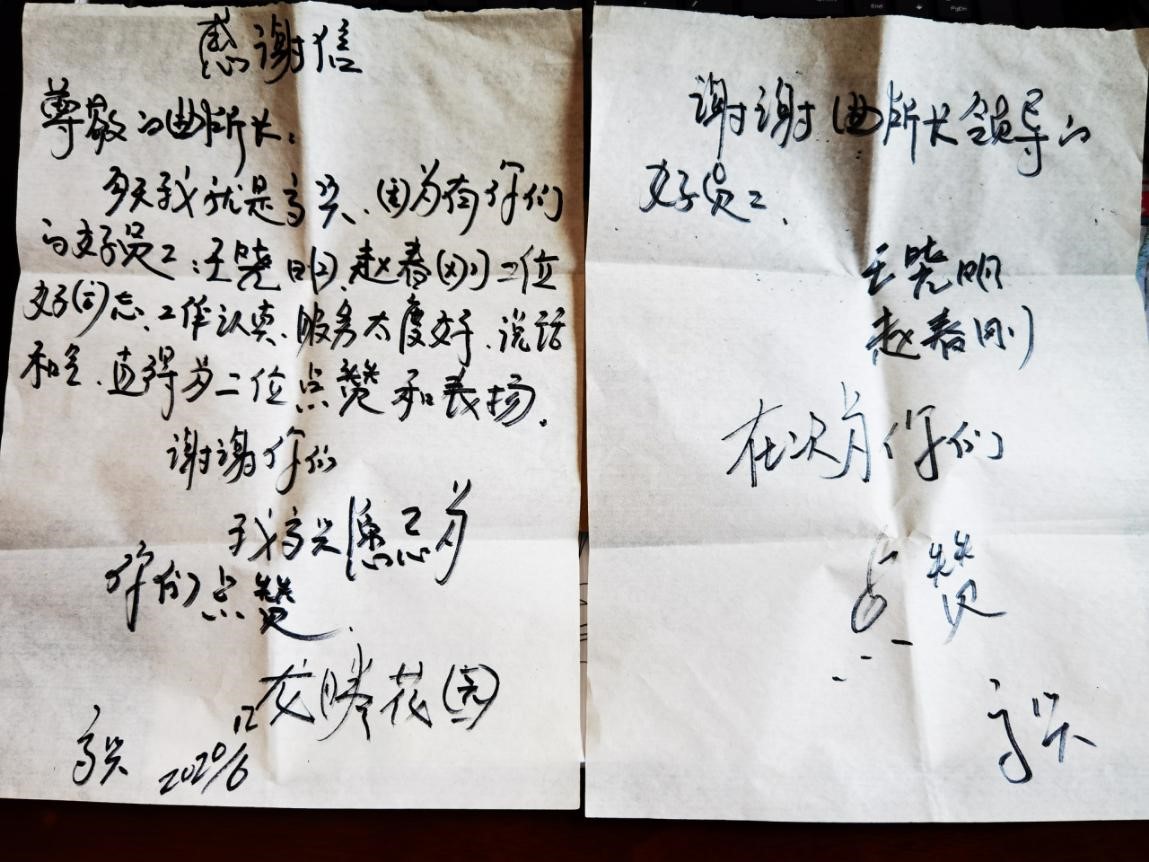 感谢信
尊敬的曲所长:
今天我就是高兴、因为有你们
的好员工:王晓明、赵春刚二位
好同志、工作认真、服务太度好、说话
和气、直得为二位点赞和表扬。
谢谢你们
我高兴愿忌为
你们点赞.
龙腾花园
高兴 2020/6
谢谢曲所长领导的
好员工、
王晓明
赵春刚
在次为你们
点赞
高兴